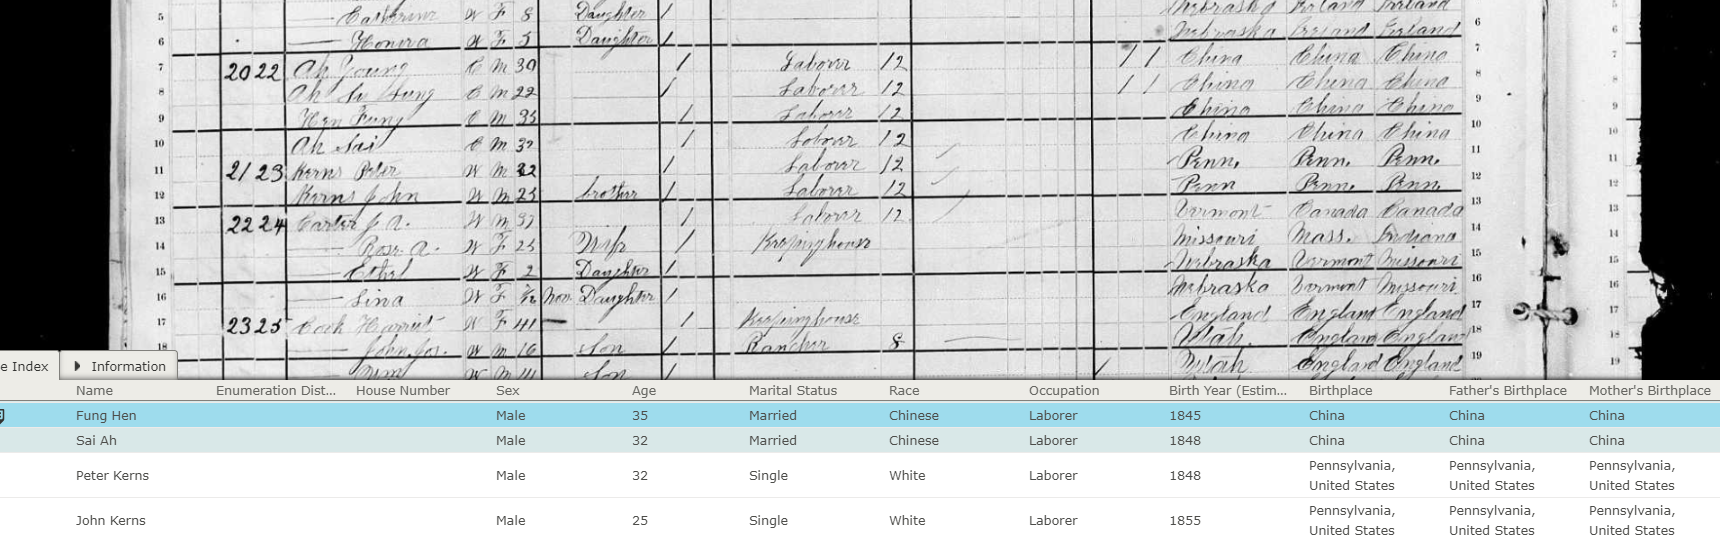 5 — Catherine W F 8 Daughter / Nebraska Ireland Ireland
6 — Honora W F 5 Daughter / Nebraska Ireland Ireland 6
7 20 22 Ah Young C M 30 / Laborer 12 / / China China China 7
8 Ah C M 22 / Laborer 12 / / China China China 8
9 Hen Fung C M 35 / Laborer 12 China China China 9
10 Ah Sai C M 32 / Laborer 12 China China China 10
11 21 23 Kerns Peter W M 32 / Laborer 12 Penn. Penn. Penn. 11
12 Kerns John W M 25 brother / Laborer 12 Penn Penn. Penn. 12
13 22 24 Carter J. A. W M 37 / Laborer 12 Vermont Canada Canada 13
14 — Rosa A. W F 25 Wife / Keeping house Missouri Mass. Indiana 14
15 — Ethel W F 2 Daughter / Nebraska Vermont Missouri 15
16 — Lina W F Nov Daughter / Nebraska Vermont Missouri 16
17 23 25 Cook Harriet W F 41 — / Keeping house England England England 17
18 — John Jos. W M 16 Son / Rancher 8 Utah. England England 18
— Wm W M Son / Utah England England 19
e Index Information
Name Enumeration Dist... House Number Sex Age Marital Status Race Occupation Birth Year (Estim... Birthplace Father's Birthplace Mother's Birthplace
Fung Hen Male 35 Married Chinese Laborer 1845 China China China
Sai Ah Male 32 Married Chinese Laborer 1848 China China China
Peter Kerns Male 32 Single White Laborer 1848 Pennsylvania, United States Pennsylvania, United States Pennsylvania, United States
John Kerns Male 25 Single White Laborer 1855 Pennsylvania, United States Pennsylvania, United States Pennsylvania, United States